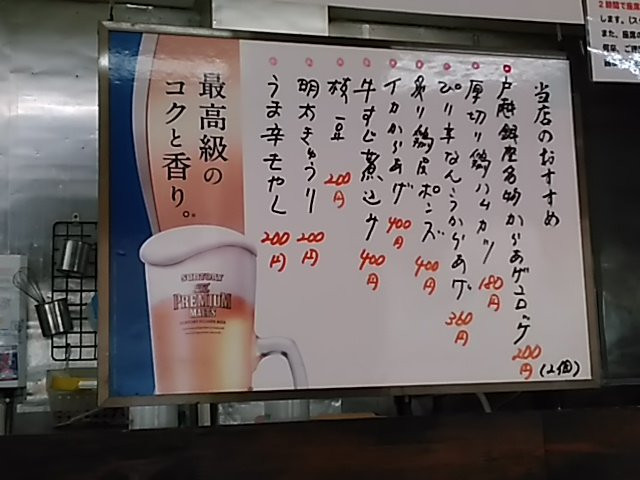 当店のおすすめ
戸越銀座名物からあげコロッケ 200円 (2個)
厚切り鶏ハムカツ 180円
ぴり辛なんこつからあげ 360円
炙り鶏皮ポンズ 400円
イカからあげ 400円
牛すじ煮込み 400円
枝豆 200円
明太きゅうり 200円
うま辛もやし 200円
最高級の
コクと香り。
SUNTORY
THE
PREMIUM
MALT'S